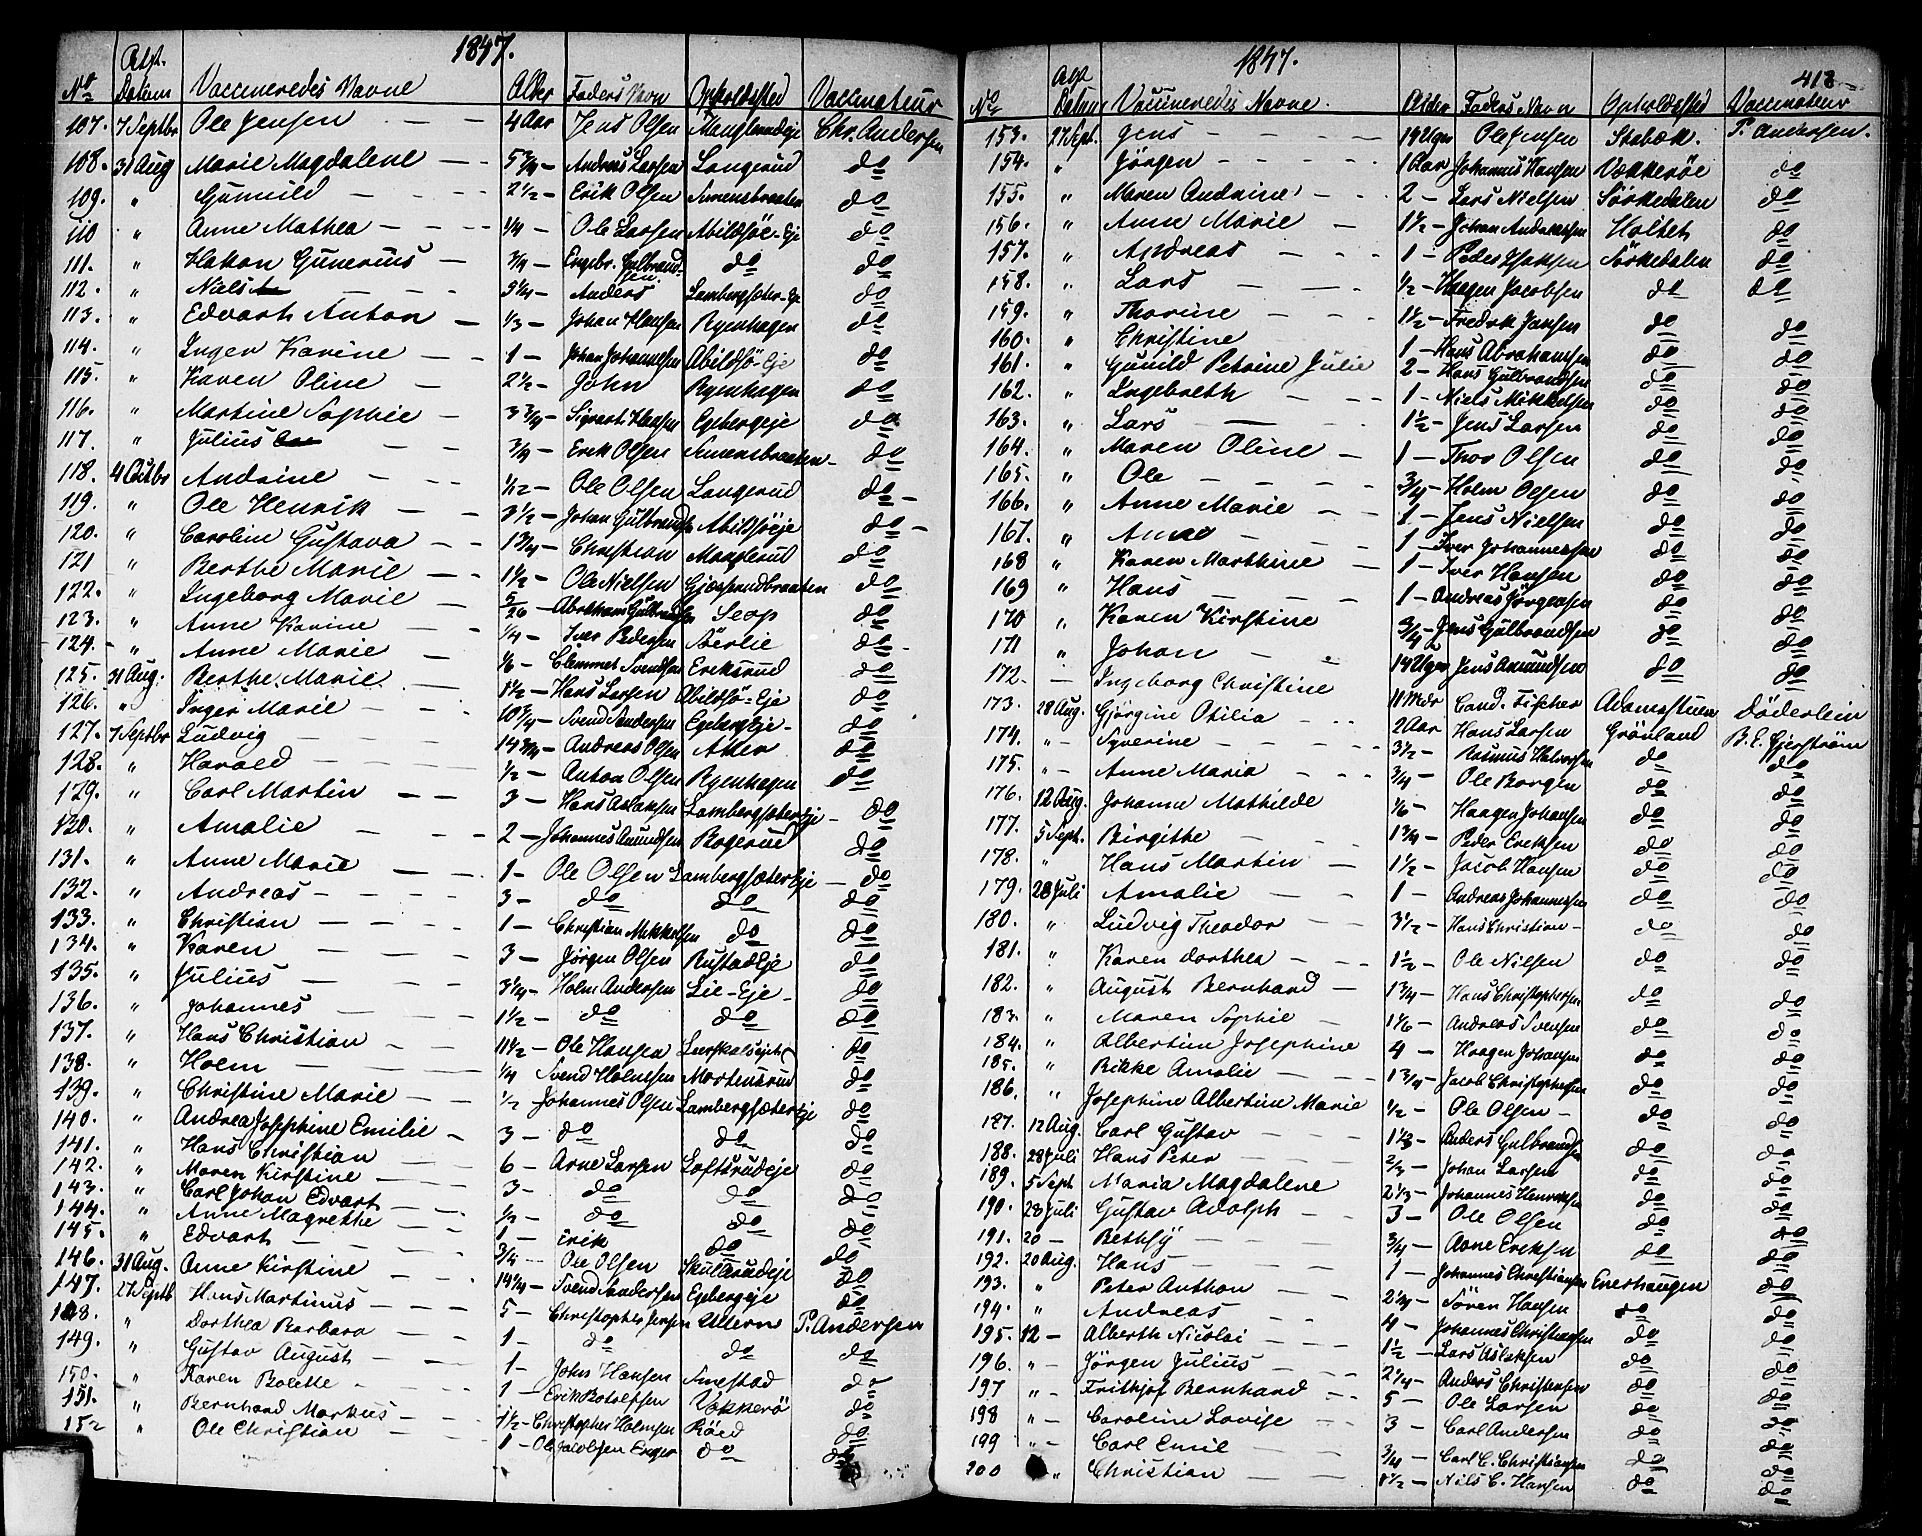 1847.
No Attst. Datum Vaccineredes Navne Alder Faders Navn Opholdsted Vaccinateur
107. 7 Septbr Ole Jensen 4 Aar Jens Olsen Manglerudeje Chr. Andersen
108. 31 Aug Marie Magdalene 5 3/4 Andreas Larsen Langerud do
109. " Gunnild 2 1/2 Erik Olsen Simensbraaten do
110 " Anne Mathea 1/4 Ole Larsen Abildsöe-Eje do
111. " Hakon Gunerius 3/4 Engebr. Gulbrandsen do do
112. " Niels 5 1/4 Anders Lambergsæter-Eje do
113. " Edvart Anton 1/3 Johan Hansen Ryenhagen do
114. " Inger Karine 1 Johan Johannesen Abildsö-Eje do
115. " Karen Oline 2 1/2 John Ryenhagen do
116. " Martine Sophie 3 3/4 Sigvart Hansen Egebergeje do
117. " Julius 3/4 Erik Olsen Simensbraaten do
118. 4 Octbr Andrine 1/12 Ole Olsen Langerud do
119. " Ole Henrik 3 1/2 Johan Gulbrands. Abildsöeje do
120. " Caroline Gustava 1 3/4 Christian Manglerud do
121 " Berthe Marie 1 1/2 Ole Nielsen Gjøsrudbraaten do
122. " Ingeborg Marie 5/26 Abraham Gulbrandsen Seop do
123. " Anne Karine 1/4 Iver Pedersen do
124. " Anne Marie 1/6 Clemmet Svendsen Eriksrud do
125. 31 Aug. Berthe Marie 1 1/2 Hans Larsen Abildsö-Eje do
126. " Inger Marie 10 3/4 Svend Andersen Egeberg Eje do
127. 7 Septbr Ludvig 14 3/4 Andreas Olsen Aker do
128. " Harald 1/2 Anton Olsen Ryenhagen do
129. " Carl Martin 3 Hans Aslaksen Lambergsæter Eje do
130. " Amalie 2 Johannes Amundsen Bogerud do
131. " Anne Marie 1 Ole Olsen Lambergsæter Eje do
132. " Andreas 3 do do do
133. " Christian 1 Christian Mikkelsen do do
134. " Karen 3 Jörgen Olsen Rustad Eje do
135. " Julius 3 1/4 Holm Andersen Lie-Eje do
136. " Johannes 1 1/2 do do do
137. " Hans Christian 11 1/2 Ole Hansen do
138. " Holm 1/4 Svend Holmsen Mortensrud do
139. " Christine Marie 1/2 Johannes Olsen Lambergsæter Eje do
140. " Andrea Josephine Emilie 3 do do do
141. " Hans Christian 6 Arne Larsen Loftsrudeje do
142. " Maren Kirstine 3 do do do
143. " Carl Johan Edvart 1/2 do do do
144. " Anne Magrethe 1 Erik do do
145. " Edvart 3/4 Ole Olsen Skullerudeje do
146. 31 Aug. Anne Kirstine 14 3/4 Svend Andersen Egebergeje do
147. 27 Septb Hans Martinus 5 Christopher Jensen Ullern P. Andersen
148. " Dorthea Barbara 1 do do do
149. " Gustav August 1 John Hansen Smestad do
150. " Karen Bolette 1 Erik Botolfsen Vækkerö do
151. " Bernhard Markus 1 1/2 Christopher Holmsen Röed do
152 " Ole Christian 1 Ole Jacobsen Enger do do
1847. 413
No Attst Datum Vaccineredes Navne. Alder Faders Navn Opholdsted Vaccinateur
153. 27 Sept. Jens 14 Uger Ole Jensen Stabæk. P. Andersen.
154. " Jörgen 1 Aar Johannes Hansen Vækkeröe do
155. " Maren Andrine 2 Lars Nielsen Sörkedalen do
156. " Anne Marie 1 1/2 Johan Andreassen Holtet do
157. " Andreas 1 Peder Isaksen Sörkedalen do
158. " Lars 1/2 Haagen Jacobsen do do
159. " Thorine 1 1/2 Fredrk Jansen do do
160. " Christine 1 Hans Abrahamsen do do
161. " Gunild Petrine Julie 2 Hans Gulbrandsen do do
162. " Ingebreth 1 Niels Mikkelsen do do
163. " Lars 1 1/2 Jens Larsen do do
164. " Maren Oline 1 Thor Olsen do do
165. " Ole 3/4 Holm Olsen do do
166. " Anne Marie 1 Jens Nielsen do do
167. " Anne 1 Iver Johannessen do do
168 " Karen Marthine 1 Iver Hansen do do
169 " Hans 1 Andreas Jörgensen do do
170 " Karen Kirstine 3/4 Jens Gulbrandsen do do
171 " Johan 14 Uger Jens Amundsen do do
172. — Ingeborg Christine 11 Mdr Cand. Fischer Adamstuen Döderlein
173. 28 Aug. Gjörgine Otilia 2 Aar Hans Larsen Grönland B. E. Gjerström
174. " Syverine 3 1/2 Rasmus Halvorsen do do
175. " Anne Maria 3/4 Ole Borgen do do
176. 12 Aug. Johanne Mathilde 1/6 Haagen Johansen do do
177. 5 Sept. Birgithe 1 3/4 Peder Eriksen do do
178. " Hans Martin 1 1/2 Jacob Hansen do do
179. 28 Juli Amalie 1 Andreas Johannessen do do
180. " Ludvig Theodor 3 1/2 Hans Christian do do
181. " Karen Dorthea 1 1/2 Ole Nilsen do do
182. " August Bernhard 1 3/4 Hans Christophersen do do
183. " Maren Sophie 1 1/6 Andreas Svensen do do
184. " Albertine Josephine 4 Haagen Johansen do do
185. " Rikke Amalie 1 3/4 Jacob Christophersen do do
186. " Josephine Albertine Marie 1/2 Ole Olsen do do
187. 12 Aug. Carl Gustav 1 1/3 Anders Gulbrandsen do do
188. 28 Juli Hans Peter 2/3 Johan Larsen do do
189. 5 Sept Maria Magdalene 2 1/3 Johannes Henriksen do do
190. 28 Juli Gustav Adolph 3 Ole Olsen do do
191. 20 — Bethsy 3/4 Arne Eriksen do do
192. 20 Aug. Hans 1 Johannes Christiansen Enerhaugen do
193. " Peter Anthon 2 1/4 Sören Hansen do do
194. " Andreas 4 Johannes Christiansen do do
195. 12 — Alberth Nicolai 1 1/2 Lars Aslaksen do do
196. " Jörgen Julius 2 1/4 Anders Christensen do do
197 " Frithjof Bernhard 5 Ole Larsen do do
198 " Caroline Lovise 3 Carl Andersen do do
199 " Carl Emil 3/4 Carl C. Christiansen do do
200 " Christian 1 1/2 Nils C. Hansen do do